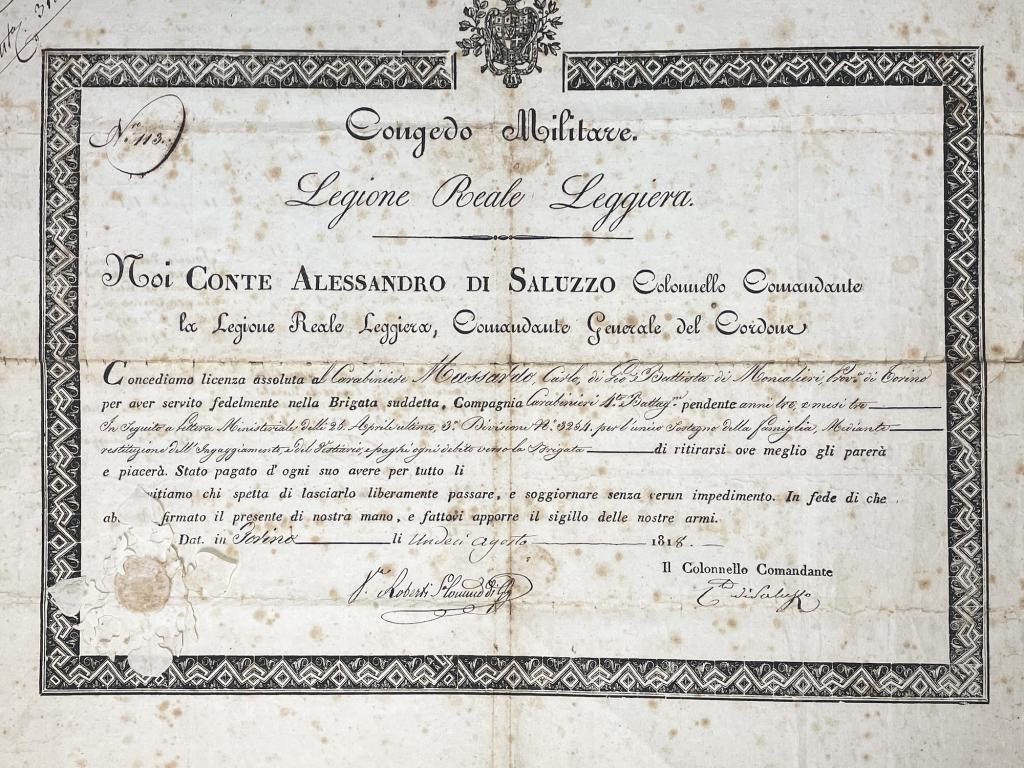 N.ro 113.
Congedo Militare.
Legione Reale Leggiera.
Noi CONTE ALESSANDRO DI SALUZZO Colonnello Comandante
la Legione Reale Leggiera, Comandante Generale del Cordone
Concediamo licenza assoluta al Carabiniere Massardo Carlo, di Gio: Battista di Moncalieri, Prov.a di Torino
per aver servito fedelmente nella Brigata suddetta, Compagnia Carabinieri 4.to Battag.ne pendente anni tre, e mesi tre
In Seguito a lettera Ministeriale delli 28. Aprile ultimo, 3.a Divisione N.o 3284. per l'unico Sostegno della famiglia, Mediante
restituzione dell'Ingaggiamento, e del Vestiario, e paghi ogni debito verso la Brigata di ritirarsi ove meglio gli parerà
e piacerà. Stato pagato d' ogni suo avere per tutto li
vitiamo chi spetta di lasciarlo liberamente passare, e soggiornare senza verun impedimento. In fede di che
ab firmato il presente di nostra mano, e fattovi apporre il sigillo delle nostre armi.
Dat. in Torino li Undeci Agosto 1818.
Il Colonnello Comandante
Roberti
di Saluzzo